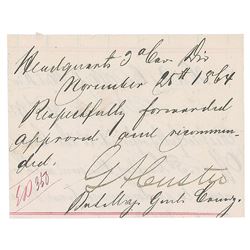 Headquarts 3d Cav Div
November 25th 1864
Respectfully forwarded
approved and recommen-
ded.
GACuster
Bvt Maj. Genl Comg.
350